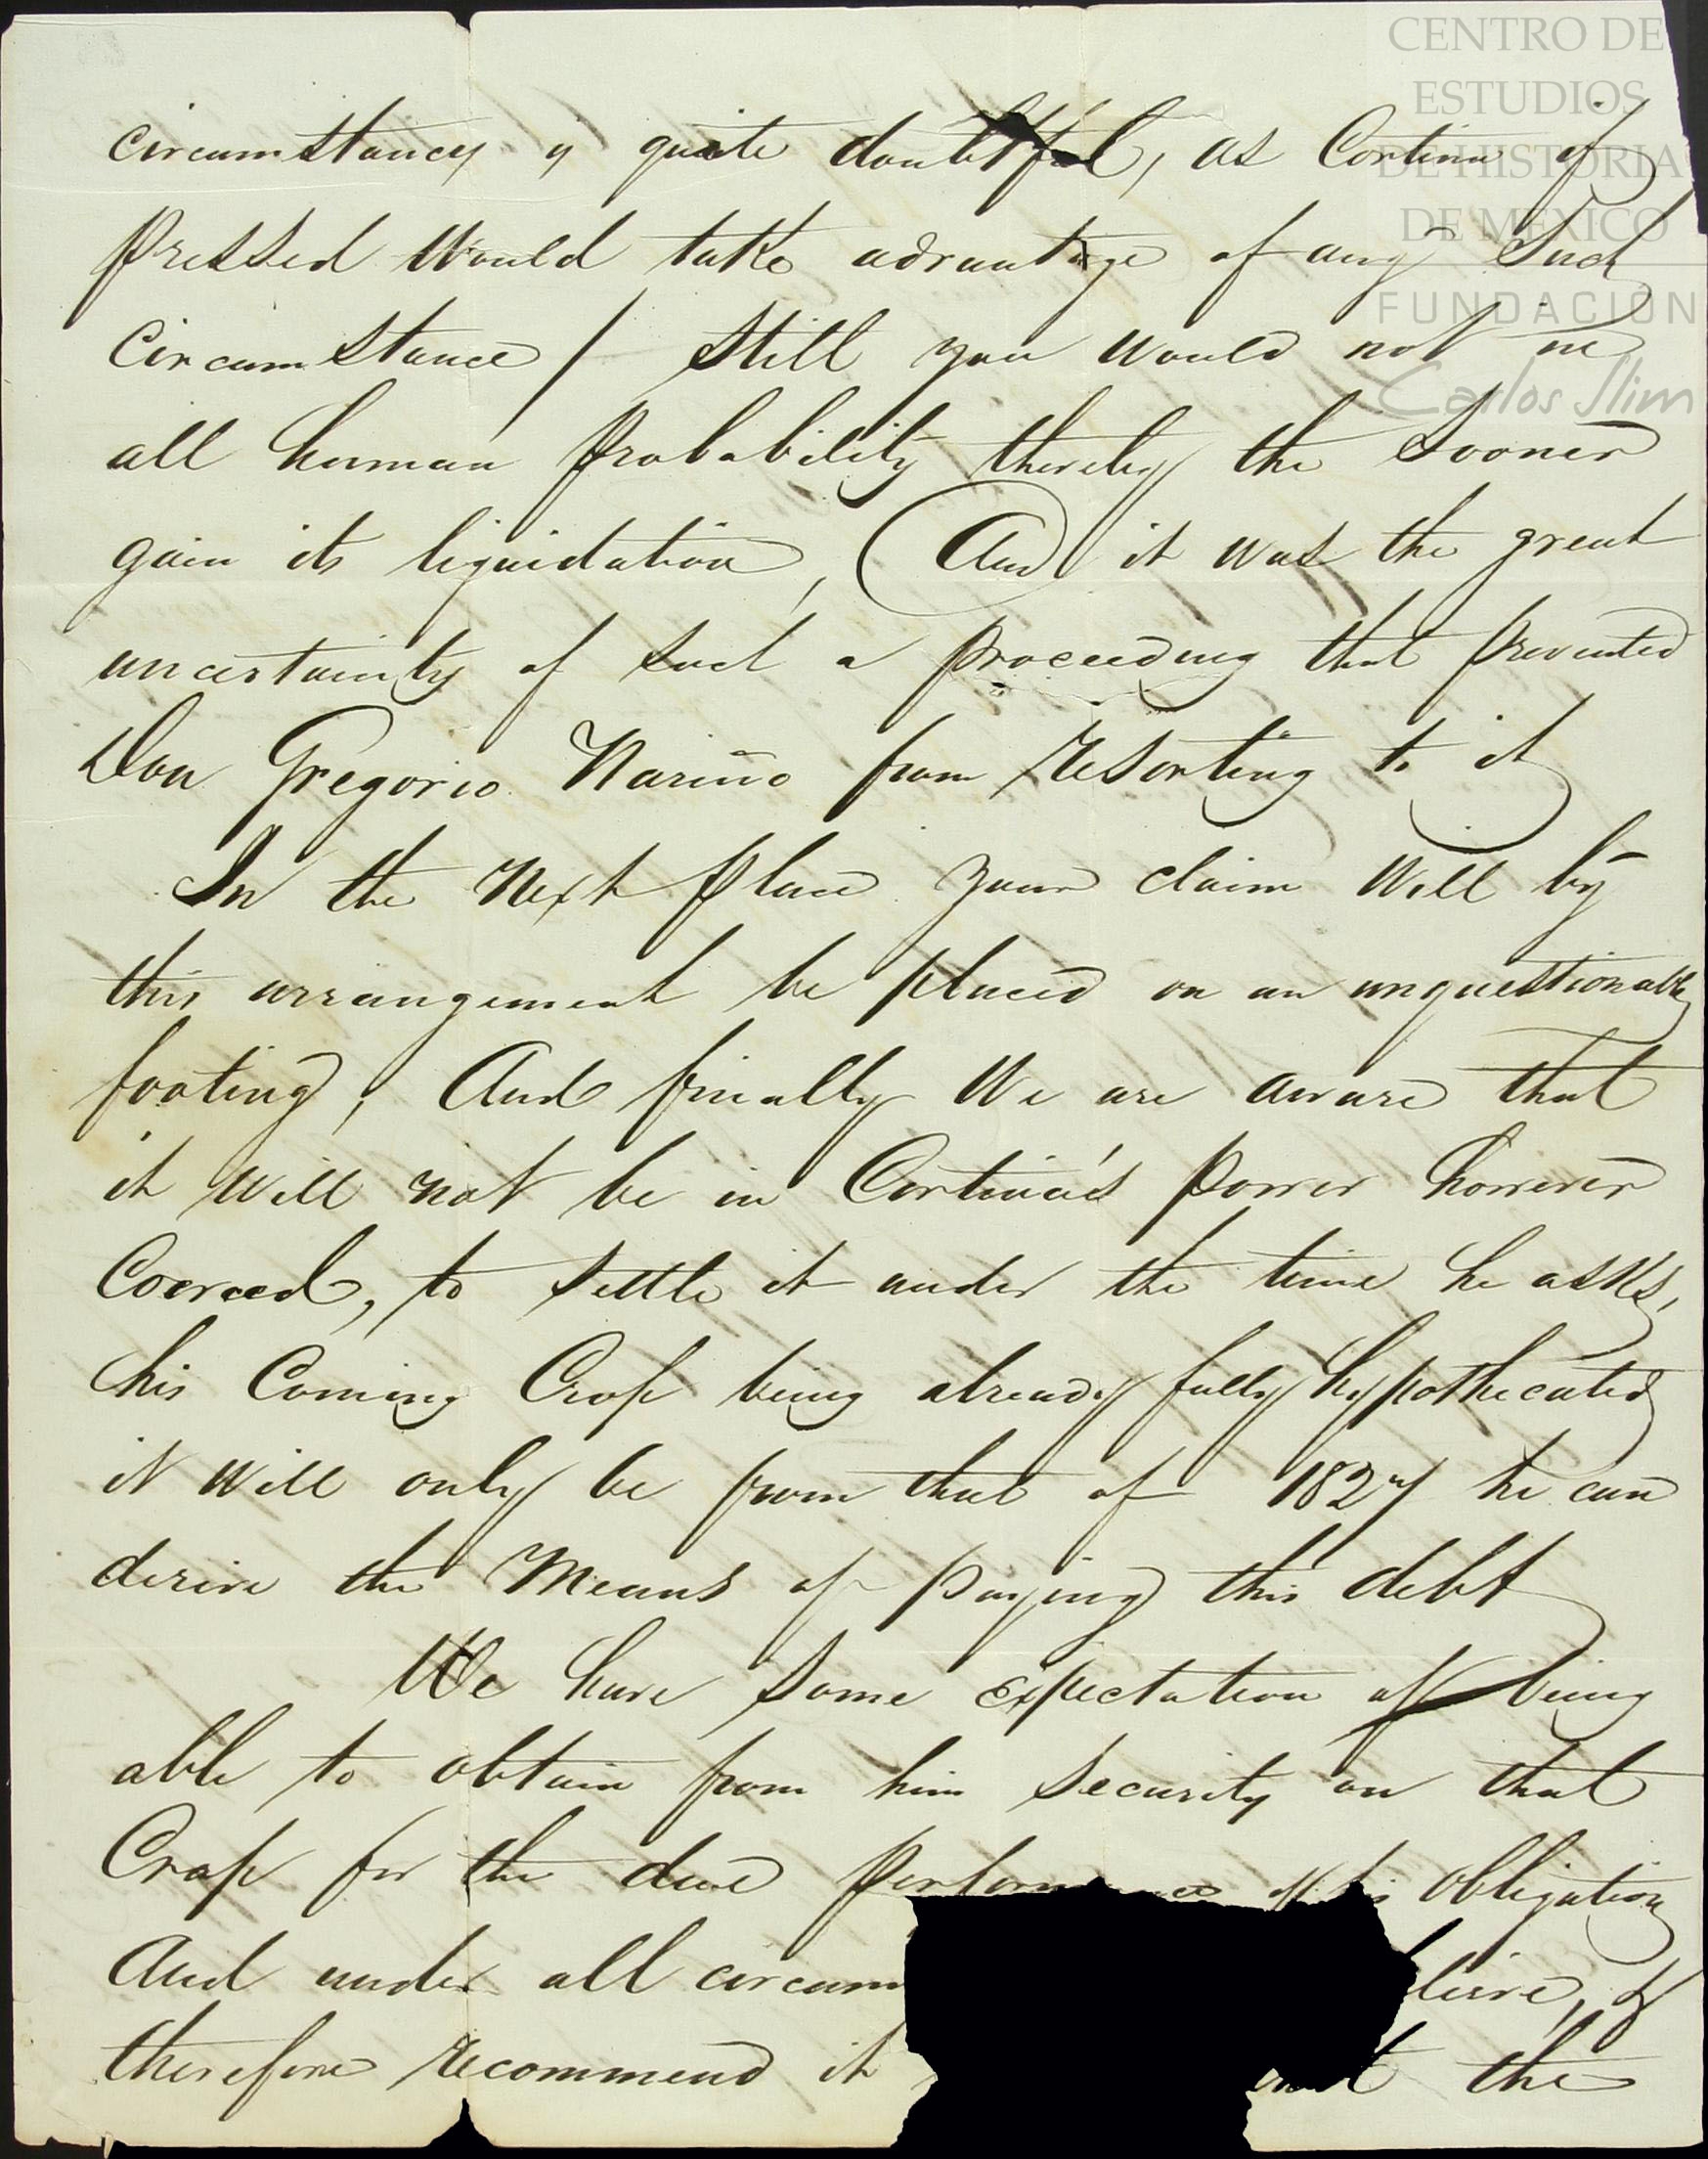 CENTRO DE
ESTUDIOS
DE HISTORIA
DE MÉXICO
FUNDACIÓN
Carlos Slim
circumstancy is quite doubtful, as Cortina if
pressed Would take advantage of any Such
Circumstance / Still you would not in
all human probability thereby the Sooner
gain its liquidation, And it was the great
uncertainty of such a proceeding that prevented
Don Gregorio Nariño from resorting to it
In the Next place your claim Will by
this arrangement be placed on an unquestionable
footing, And finally We are aware that
it Will not be in Cortina's power however
Coerced, to Settle it under the time he asks,
his Coming Crop being already fully hypothecated
it Will only be from that of 1827 he can
derive the Means of paying this debt
We have Some expectation of being
able to obtain from him Security on that
Crop for the due performance of his obligation
And under all circum lieve, &
therefore recommend it the